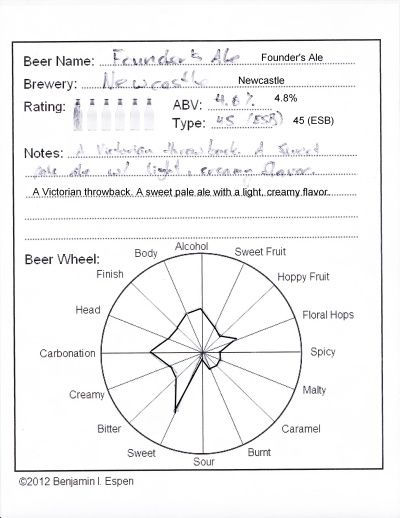 Beer Name: Founder's Ale Founder's Ale
Brewery: Newcastle Newcastle
Rating:
ABV: 4.8% 4.8%
Type: 45 (ESB) 45 (ESB)
Notes: A Victorian throwback. A sweet
pale ale w/ light, creamy flavor.
A Victorian throwback. A sweet pale ale with a light, creamy flavor.
Beer Wheel:
Alcohol
Sweet Fruit
Hoppy Fruit
Floral Hops
Spicy
Malty
Caramel
Burnt
Sour
Sweet
Bitter
Creamy
Carbonation
Head
Finish
Body
©2012 Benjamin I. Espen